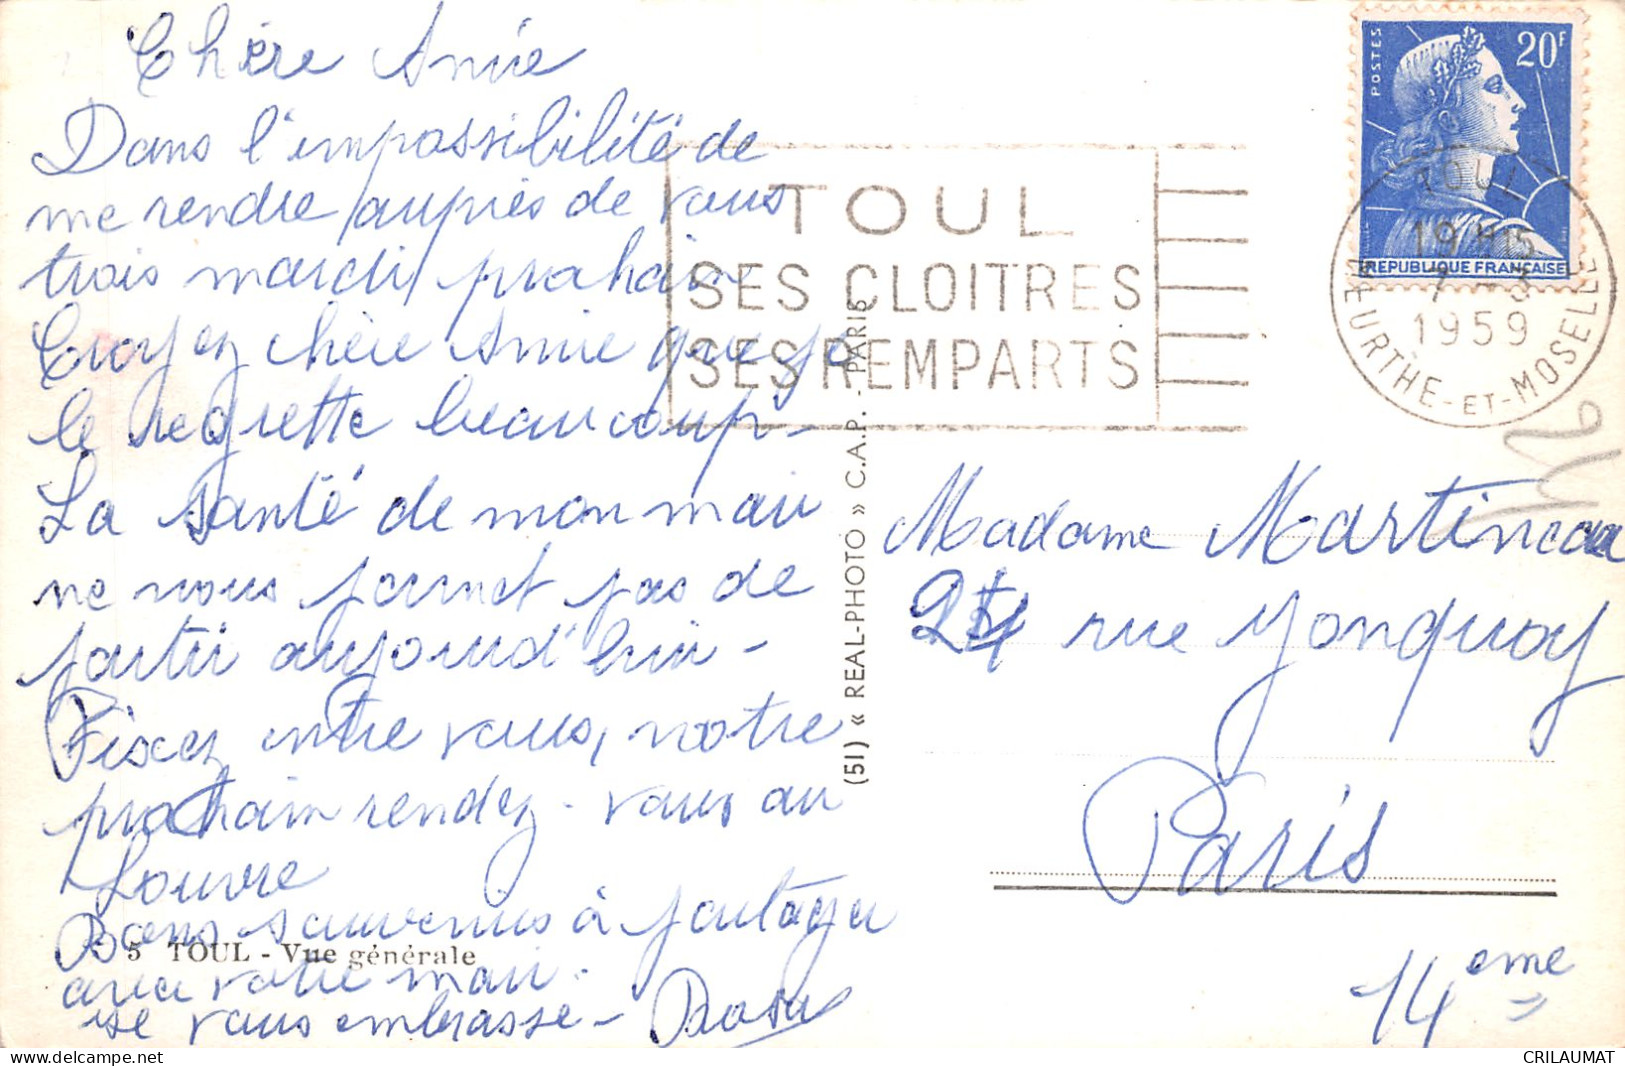 Chère Annie
Dans l'impossibilité de
me rendre auprès de vous
trois mardi prohain
Croyez chère Annie que je
le regrette beaucoup -
La santé de mon mari
ne nous permet pas de
partir aujourd'hui -
Fixez entre vous, notre
prohain rendez-vous au
Louvre
Bons souvenirs à partager
avec votre mari.
je vous embrasse -
5 TOUL - Vue générale
(51) « REAL-PHOTO » C.A.P. - PARIS
TOUL
SES CLOITRES
SES REMPARTS
POSTES
20F
REPUBLIQUE FRANÇAISE
TOUL
19 H15
7 -3
1959
MEURTHE-ET-MOSELLE
Madame Martineau
24 rue Jonquoy
Paris
14eme
CRILAUMAT